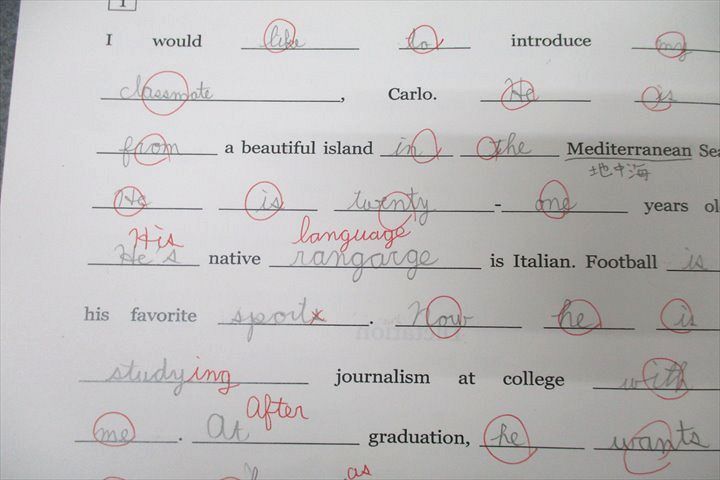 1
I would like to introduce my
classmate, Carlo. He is
from a beautiful island in the Mediterranean Sea
地中海
He is twenty-one years ol
His language
He's native rangarge is Italian. Football is
his favorite sports. Now he is
studying journalism at college with
After
me. At graduation, he wants
as